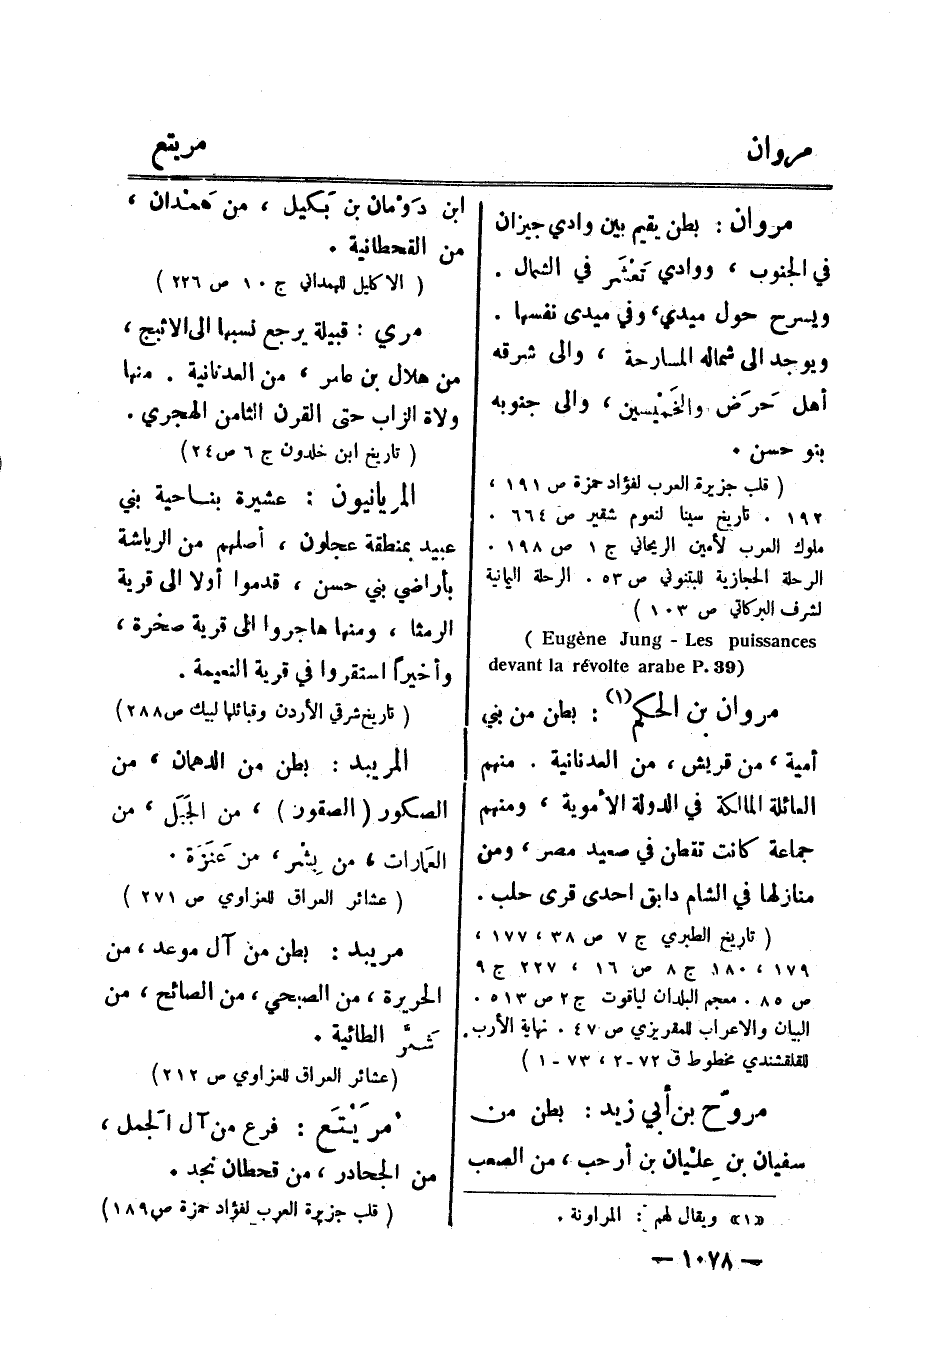 مروان
مريتع
مروان : بطن يقيم بين وادي جيزان
في الجنوب ، ووادي تَعْشَر في الشمال .
ويسرح حول ميدي، وفي ميدى نفسها .
ويوجد الى شماله المسارحة ، والى شرقه
أهل حَرَض والخَمْيسين ، والى جنوبه
بنو حسن .
( قلب جزيرة العرب لفؤاد حمزة ص ١٩١ ،
١٩٢ . تاريخ سينا لنعوم شقير ص ٦٦٤ .
ملوك العرب لأمين الريحاني ج ١ ص ١٩٨ .
الرحلة الحجازية للبتنوني ص ٥٣ . الرحلة اليمانية
لشرف البركاتي ص ١٠٣ )
( Eugène Jung - Les puissances
devant la révolte arabe P. 39)
مروان بن الحكم(١) : بطن من بني
أمية ، من قريش ، من العدنانية . منهم
العائلة المالكة في الدولة الأموية ، ومنهم
جماعة كانت تقطن في صعيد مصر ، ومن
منازلها في الشام دابق احدى قرى حلب .
( تاريخ الطبري ج ٧ ص ٣٨ ، ١٧٧ ،
١٧٩ ، ١٨٠. ج ٨ ص ١٦ ، ٢٢٧ ج ٩
ص ٨٥ . معجم البلدان لياقوت ج ٢ ص ٥١٣ .
البيان والاعراب للمقريزي ص ٤٧ . نهاية الأرب
للقلقشندي مخطوط ق ٧٢-٢ ، ٧٣-١ )
مروّح بن أبي زيد : بطن من
سفيان بن عليان بن أرحب ، من الصعب
«١» ويقال لهم : المراونة .
ابن دَوْمان بن بَكيل ، من هَمْدان ،
من القحطانية .
( الاكليل للهمداني ج ١٠ ص ٢٢٦ )
مري : قبيلة يرجع نسبها الى الاثبج ،
من هلال بن عامر ، من العدنانية . منها
ولاة الزاب حتى القرن الثامن الهجري .
( تاريخ ابن خلدون ج ٦ ص ٢٤)
المريانيون : عشيرة بناحية بني
عبيد بمنطقة عجلون ، أصلهم من الرياشة
بأراضي بني حسن ، قدموا أولا الى قرية
الرمثا ، ومنها هاجروا الى قرية صخرة ،
وأخيراً استقروا في قرية النعيمة .
( تاريخ شرقي الأردن وقبائلها لبيك ص٢٨٨)
المريبد : بطن من الدهمان ، من
الصكور ( الصقور ) ، من الجَبَل ، من
العمارات ، من بِشْر ، من عَنَزَة .
( عشائر العراق للعزاوي ص ٢٧١ )
مريبد : بطن من آل موعد ، من
الحريرة ، من الصبحي ، من الصائح ، من
شَمَّر الطائية .
(عشائر العراق للعزاوي ص ٢١٢)
مُرَيْتَع : فرع من آل الجمل ،
من الجحادر ، من قحطان نجد .
( قلب جزيرة العرب لفؤاد حمزة ص١٨٩)
— ١٠٧٨ —